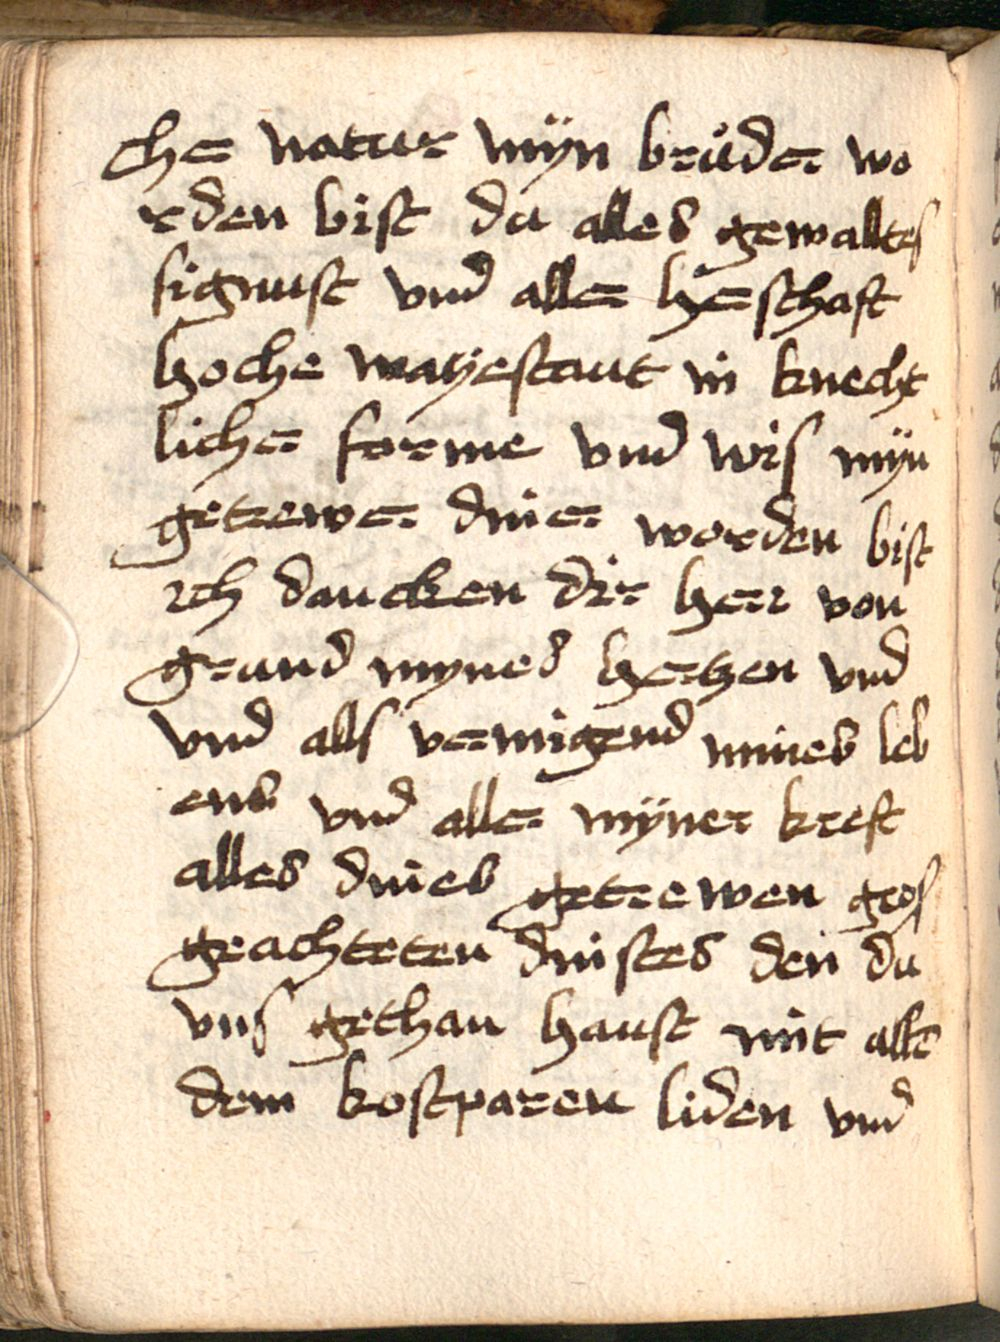 cher natur mÿn brůder wo
rden bist du alles gewalltes
signust vnd aller herschaft
hoche mayestaut in knecht
licher forme vnd wis mÿn
getrewer diner worden bist
ich dancken dir herr von
grund mynes hertzen vnd
vnd alls vermigend mines leb
ens vnd aller mÿner kreft
alles dines getrewen gros
geachteten dinstes den du
vns gethan haust mit allē
dem kostparen liden vnd